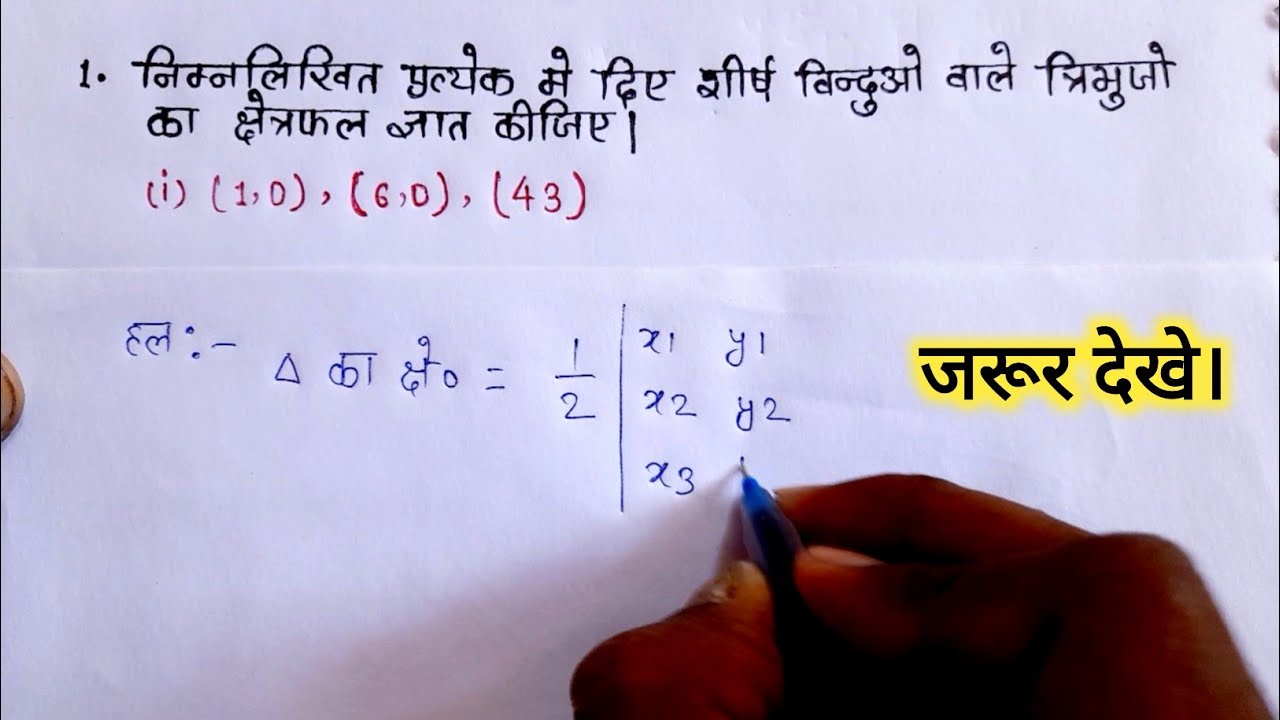 1. निम्नलिखित प्रत्येक मे दिए शीर्ष विन्दुओ वाले त्रिभुजो
का क्षेत्रफल ज्ञात कीजिए।
(i) (1,0), (6,0), (43)
हल :- Δ का क्षे० = 1/2 | x1 y1
x2 y2
x3
जरूर देखे।